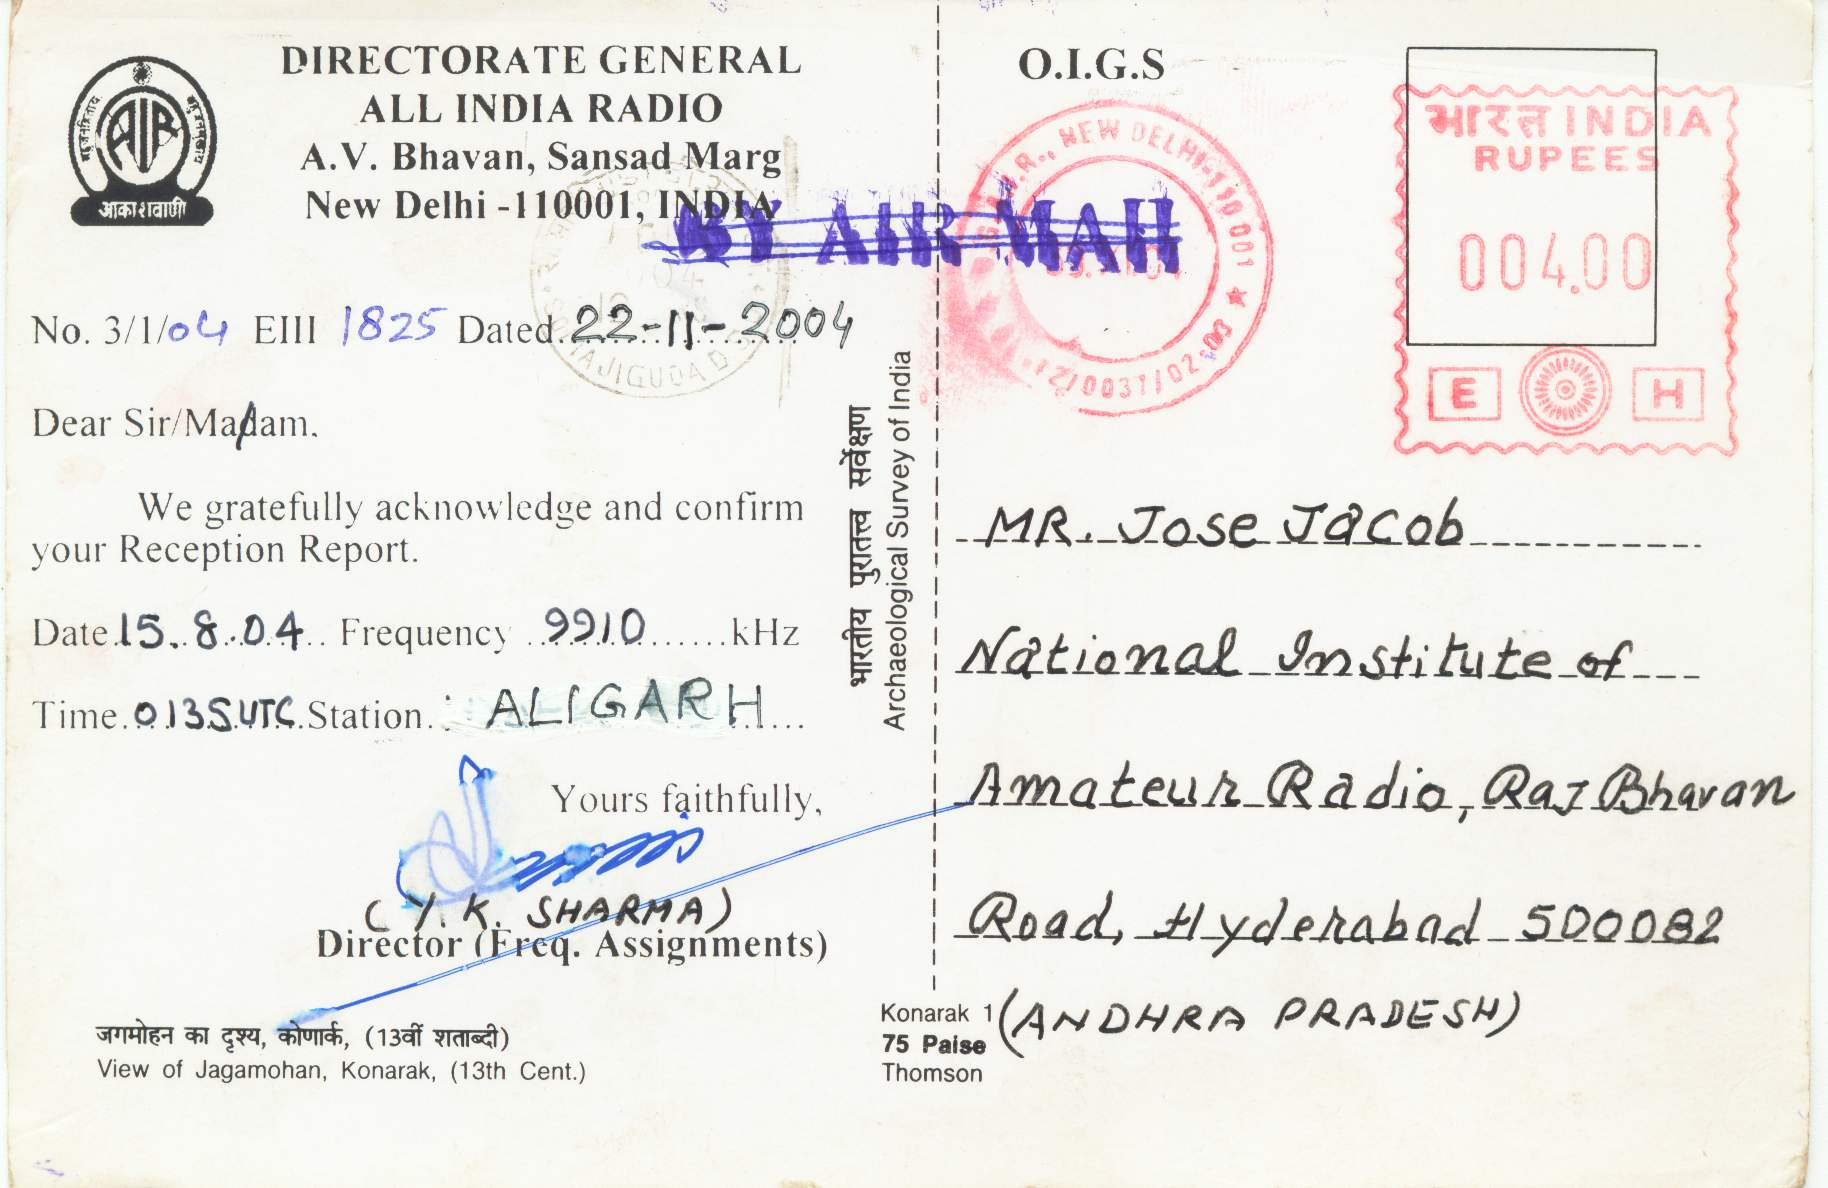 DIRECTORATE GENERAL
ALL INDIA RADIO
A.V. Bhavan, Sansad Marg
New Delhi -110001, INDIA
बहुजनहिताय बहुजनसुखाय
AIR
आकाशवाणी
BY AIR MAIL
No. 3/1/04 EIII 1825 Dated 22-11-2004
Dear Sir/Madam.
We gratefully acknowledge and confirm
your Reception Report.
Date 15.8.04 Frequency 9910 kHz
Time 0135 UTC Station : ALIGARH
Yours faithfully,
(Y. K. SHARMA)
Director (Freq. Assignments)
जगमोहन का दृश्य, कोणार्क, (13वीं शताब्दी)
View of Jagamohan, Konarak, (13th Cent.)
भारतीय पुरातत्त्व सर्वेक्षण
Archaeological Survey of India
O.I.G.S
NEW DELHI-110 001
भारत INDIA
RUPEES
004.00
E H
MR. Jose Jacob
National Institute of
Amateur Radio, Raj Bhavan
Road, Hyderabad 500082
(ANDHRA PRADESH)
Konarak 1
75 Paise
Thomson